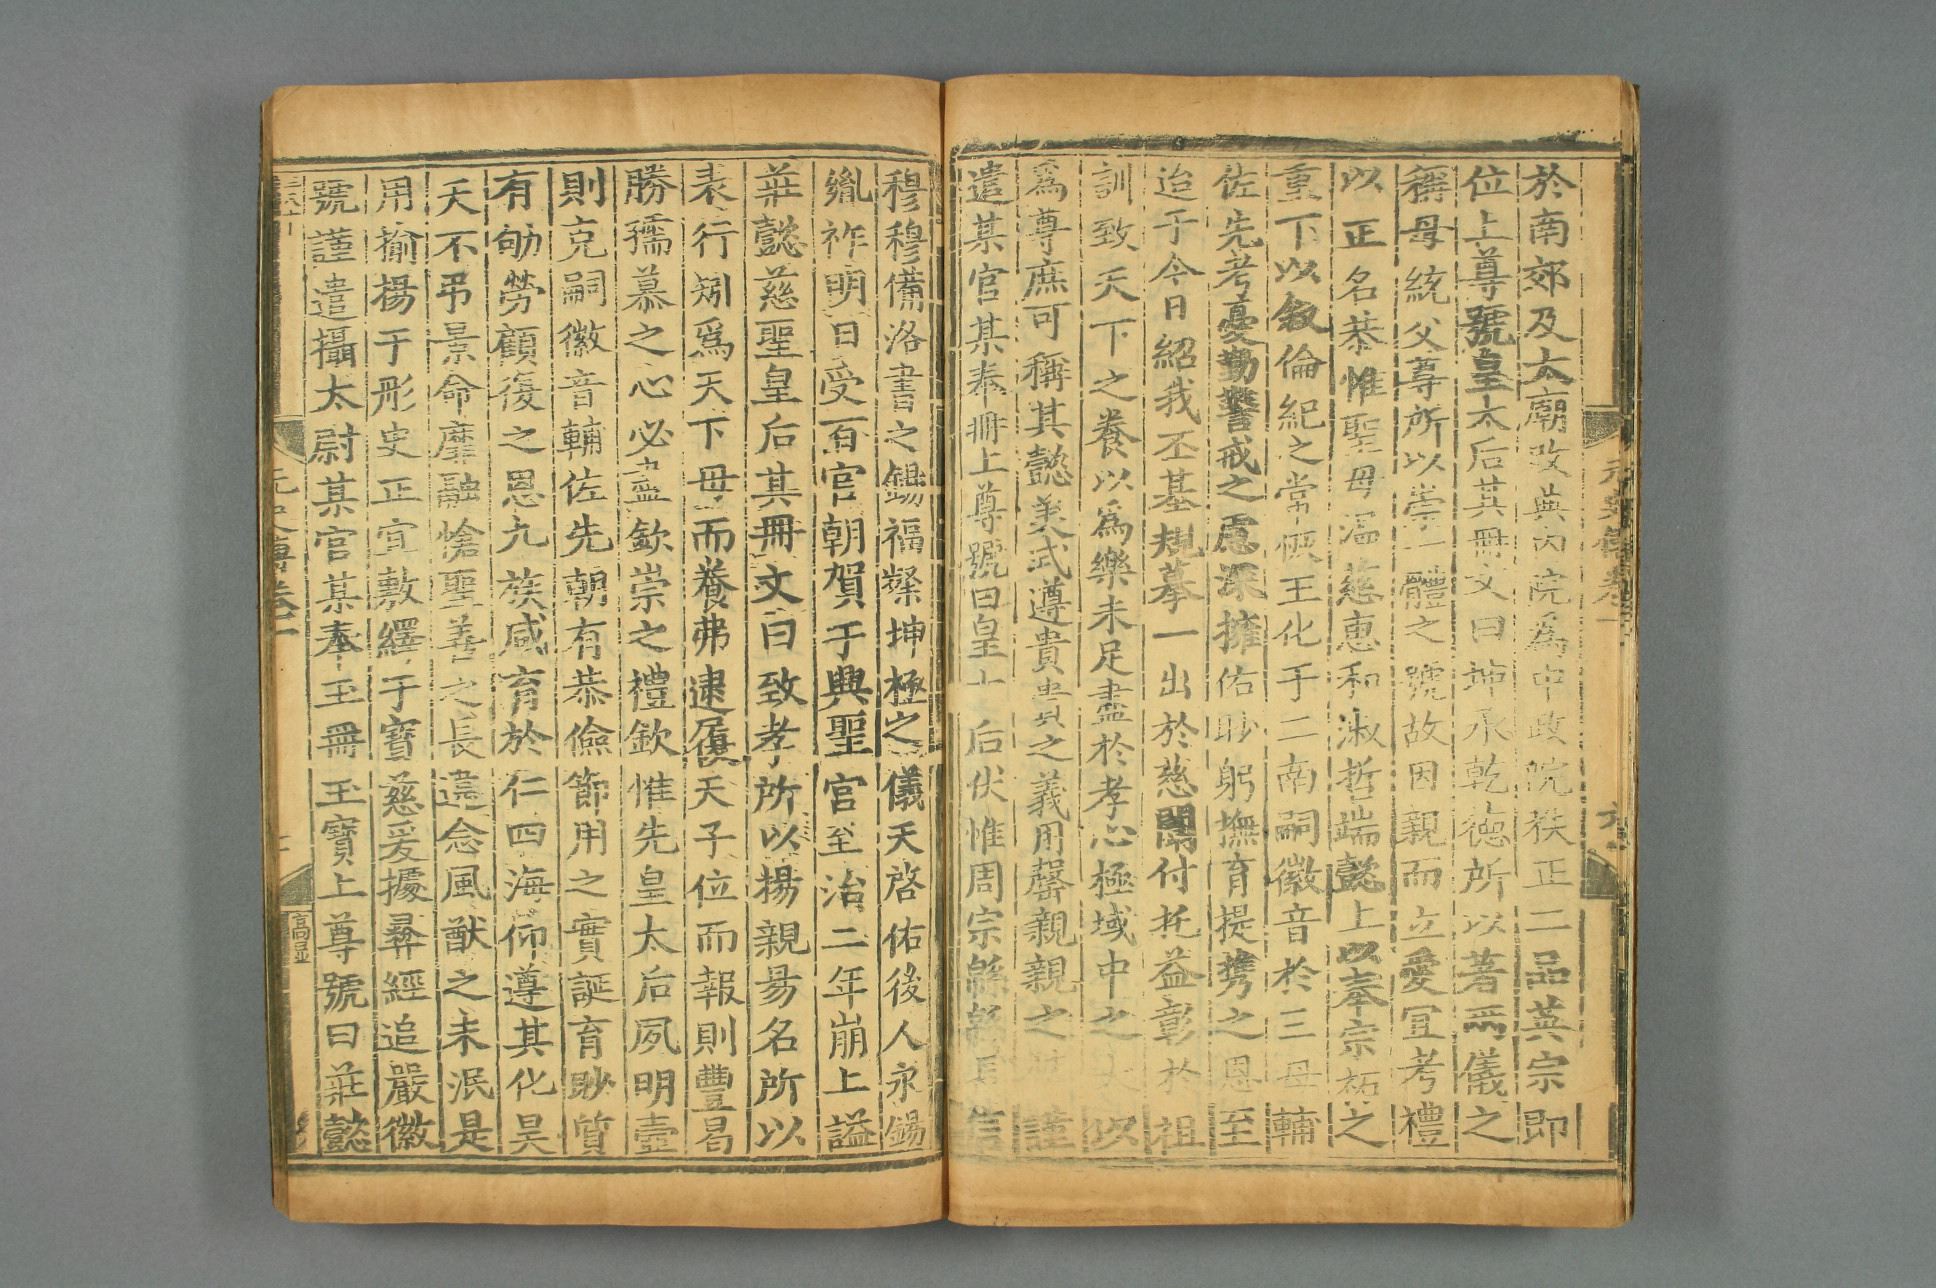 於南郊及太廟改典內院爲中政院秩正二品英宗即
位上尊號皇太后其冊文曰坤承乾德所以著兩儀之
稱母統父尊所以崇一體之號故因親而立愛宜考禮
以正名恭惟聖母溫慈惠和淑哲端懿上以奉宗祏之
重下以敘倫紀之常恢王化于二南嗣徽音於三母輔
佐先考憂勤警戒之慮深擁佑眇躬撫育提携之恩至
迨于今日紹我丕基規摹一出於慈闈付托益彰於祖
訓致天下之養以爲樂未足盡於孝心極域中之大以
爲尊庶可稱其懿美式遵貴貴之義用罄親親之 謹
遣某官某奉冊上尊號曰皇太后伏惟周宗綿緜長信
穆穆備洛書之錫福粲坤極之儀天啓佑後人永錫
胤祚明日受百官朝賀于興聖宮至治二年崩上謚
莊懿慈聖皇后其冊文曰致孝所以揚親易名所以
表行矧爲天下母而養弗逮履天子位而報則豐曷
勝孺慕之心必盡欽崇之禮欽惟先皇太后夙明壼
則克嗣徽音輔佐先朝有恭儉節用之實誕育眇質
有劬勞顧復之恩九族咸育於仁四海仰遵其化昊
天不弔景命靡融愴聖善之長違念風猷之未泯是
用揄揚于彤史正宜敷繹于寶慈爰據彞經追嚴徽
號謹遣攝太尉某官某奉玉冊玉寶上尊號曰莊懿
元史傳卷一
高显